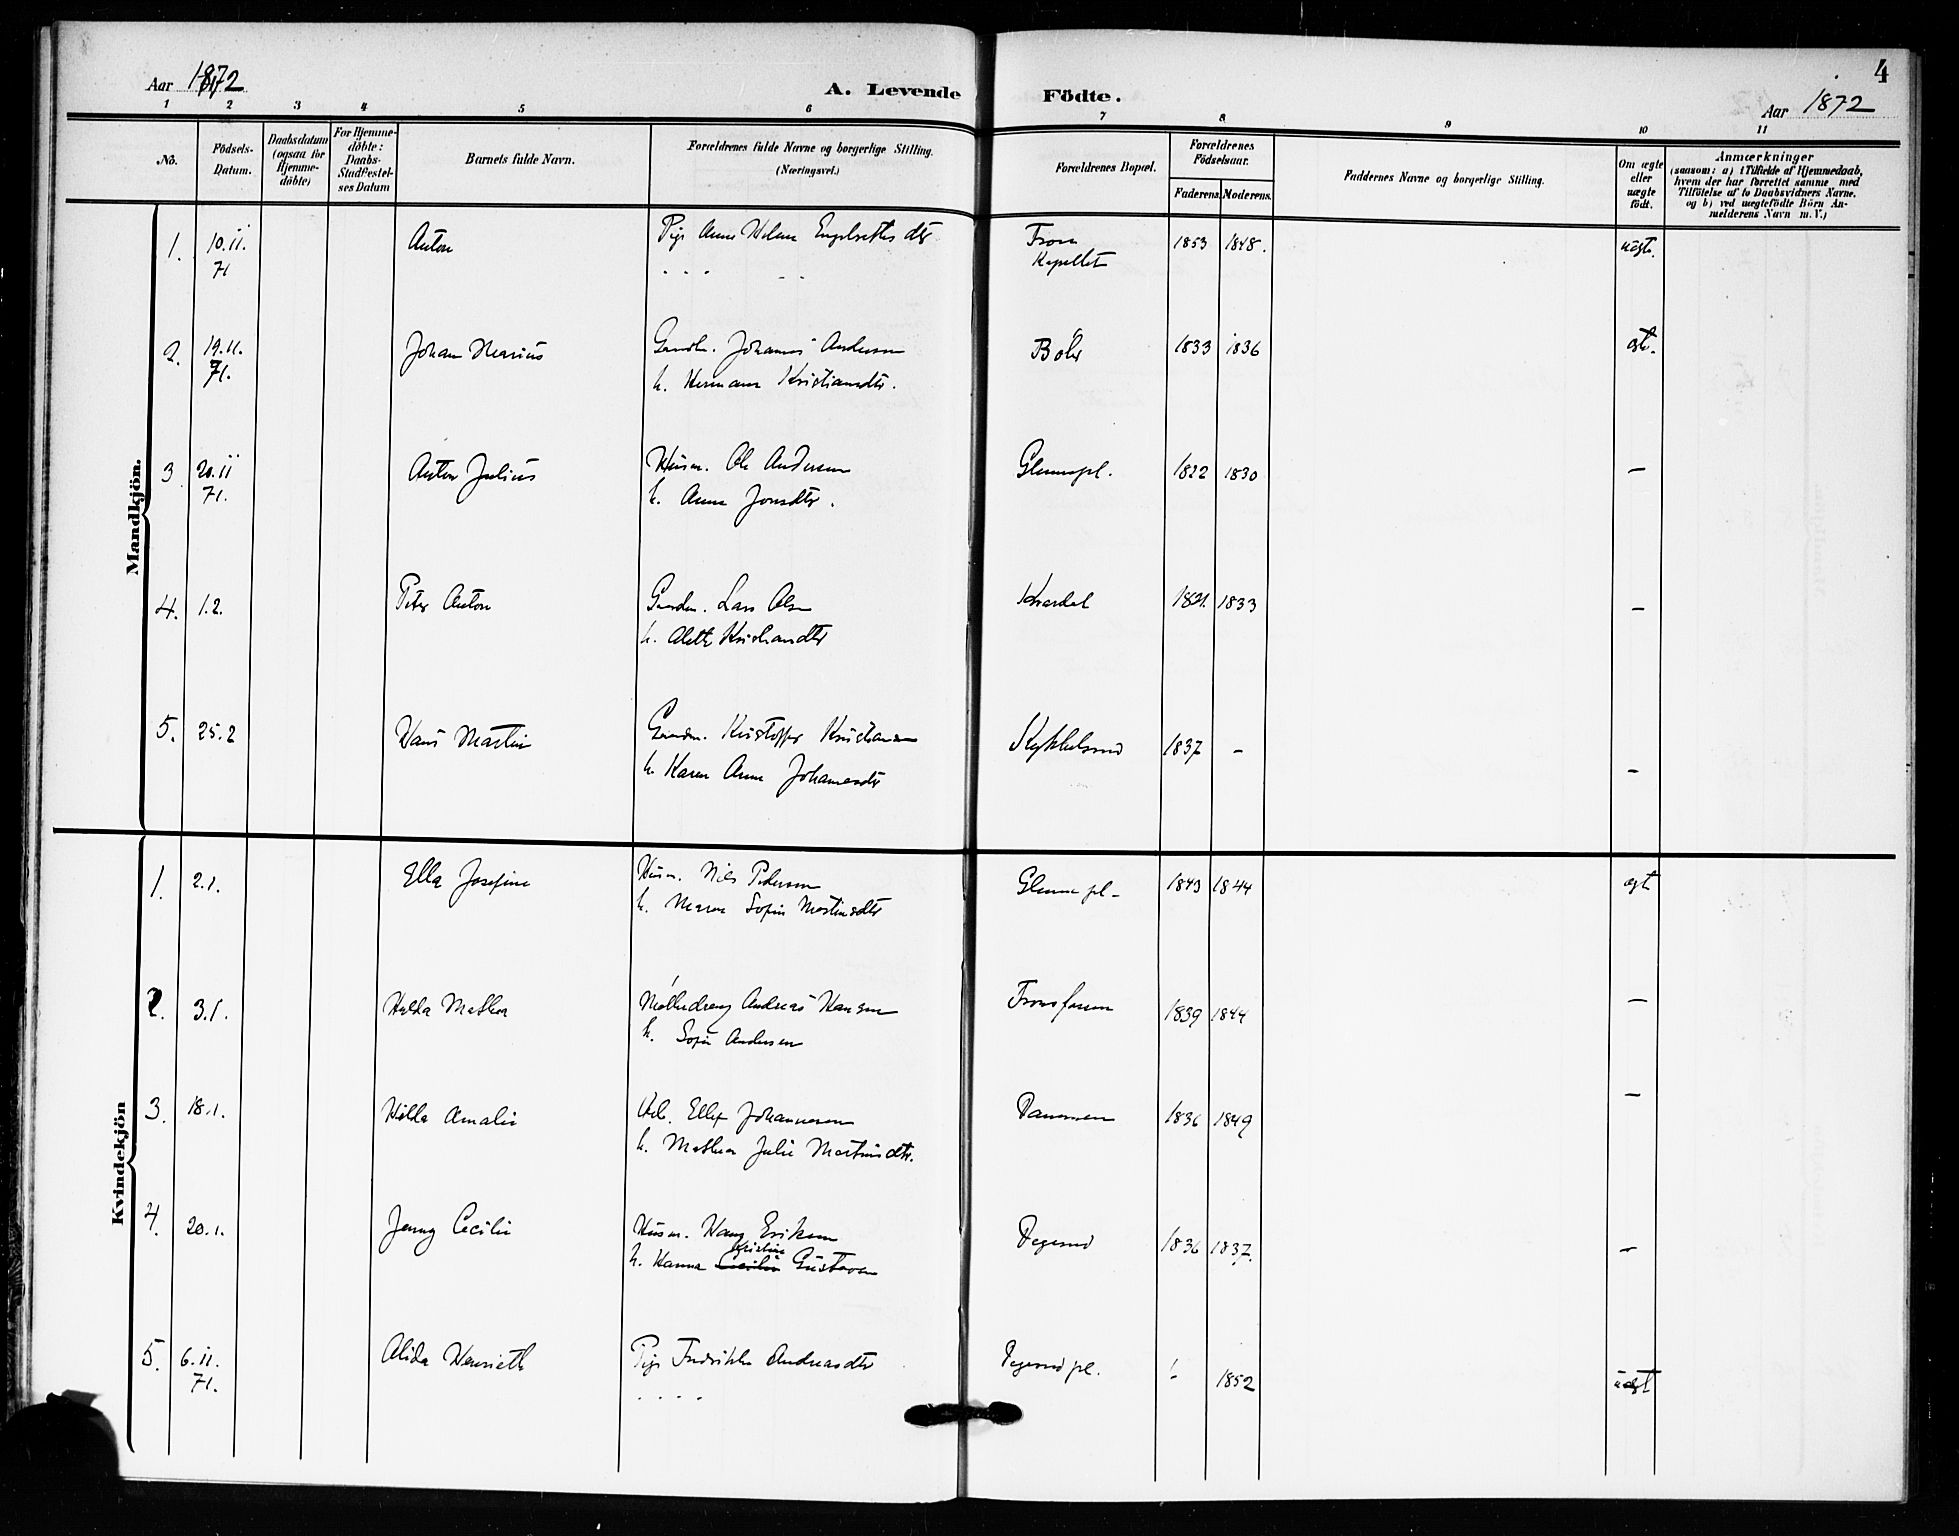 4
Aar 1872
A. Levende Födte.
Aar 1872
1 2 3 4 5 6 7 8 9 10 11
No.
Födsels-
Datum.
Daabsdatum
(ogsaa for
Hjemme-
döbte)
For Hjemme-
döbte:
Daabs-
Stadfestel-
ses Datum
Barnets fulde Navn.
Forældrenes fulde Navne og borgerlige Stilling.
(Næringsvei.)
Forældrenes Bopæl.
Forældrenes
Födselsaar.
Faderens. Moderens.
Faddernes Navne og borgerlige Stilling.
Om ægte
eller
uægte
födt.
Anmærkninger
(saasom: a) i Tilfælde af Hjemmedaab,
hvem der har forrettet samme med
Tilföielse af to Daabsvidners Navne.
og b) ved uægtefödte Börn An-
melderens Navn m. V.)
Mandkjön.
1. 10.11. Anton Pige Anne Helene Engebretts dtr Tron 1853 1848. uægte.
71 Kapellet
2. 19.11. Johan Marius Gaardm. Johannes Andersen Böler 1833 1836 ægte.
71. h. Hermana Kristiansdtr.
3 20.11 Anton Julius Husm. Ole Andersen Glennepl. 1822 1830 —
71. h. Anne Jonsdtr.
4. 1.2. Peter Anton Gaardm. Lars Olsen 1821. 1833 —
h. Alette Kristiansdtr
5. 25.2 Hans Martin Gaardm. Kristoffer Kristiansen Kykkelsrud 1837 – —
h. Karen Anne Johannesdtr
Kvindekjön
1. 2.1. Ella Josefine Husm. Nils Pedersen Glenne pl. 1843 1844 ægt
h. Maren Sofie Martinsdtr
2. 3.1. Hulda Mathea Mölledreng Andreas Hansen 1839 1844 —
h. Sofie Andersen
3. 18.1. Hilda Amalie Ellef Johannesen 1836 1849 —
h. Mathea Julie Martinsdtr.
4. 20.1. Jenny Cecilie Husm. Hans Eriksen 1836 1837. —
Kristine
h. Hanna Cecilie Gustavsen
5. 6.11. Alida Henriette Pige Fredrikke Andreasdtr pl. – 1852 uægt
71.